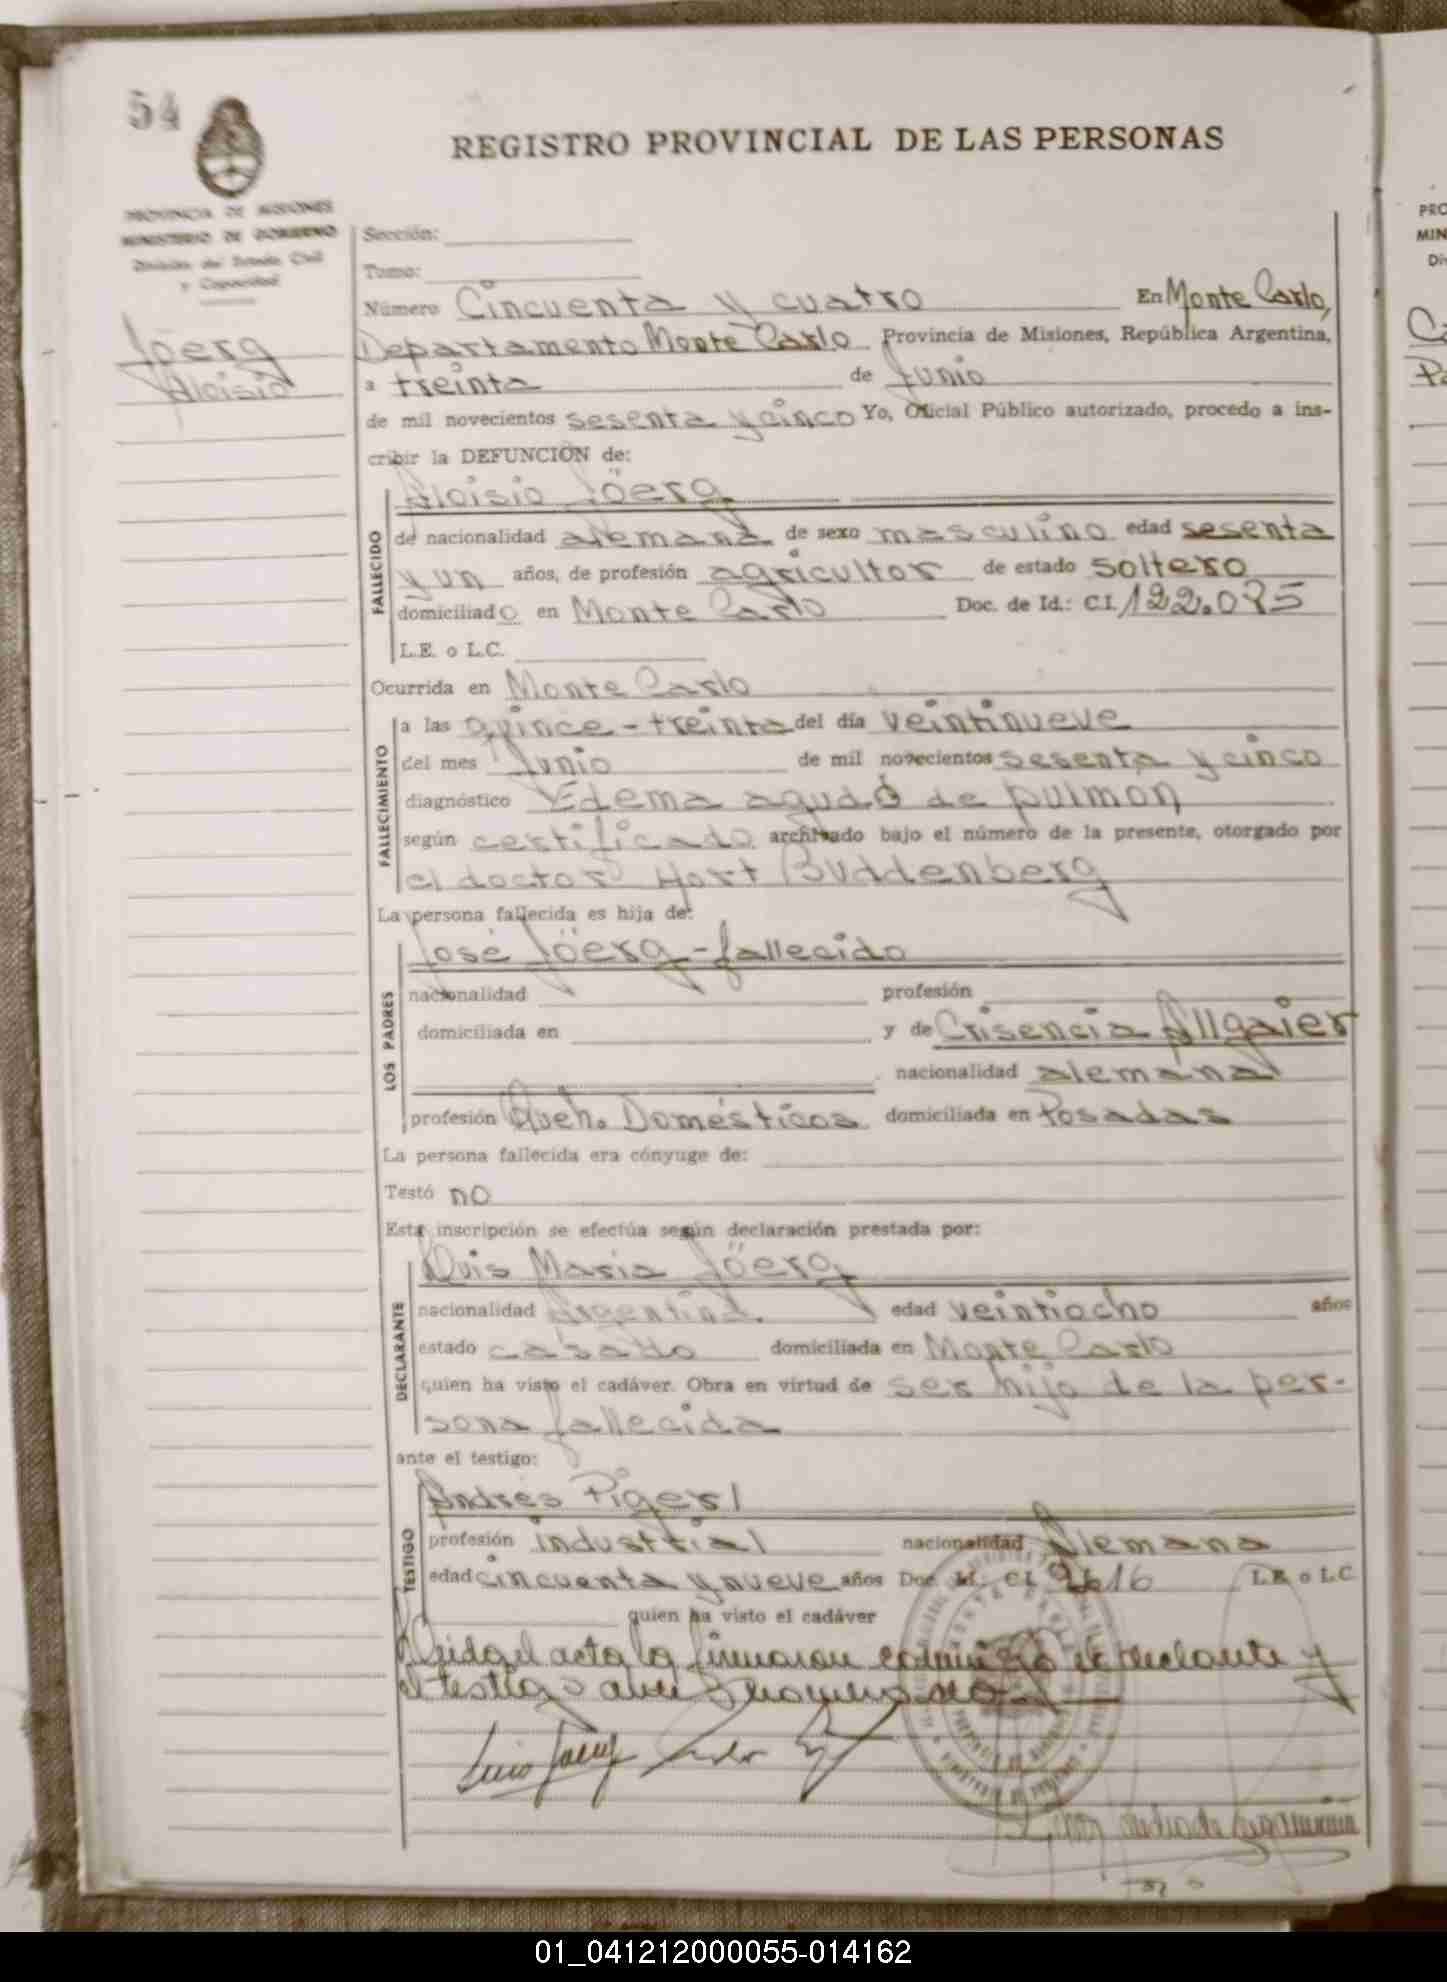 54
REGISTRO PROVINCIAL DE LAS PERSONAS
PROVINCIA DE MISIONES
MINISTERIO DE GOBIERNO
División del Estado Civil
y Capacidad
Jöerg
Aloisio
Sección:
Tomo:
Número Cincuenta y cuatro En Monte Carlo,
Departamento Monte Carlo Provincia de Misiones, República Argentina,
a treinta de Junio
de mil novecientos sesenta y cinco Yo, Oficial Público autorizado, procedo a ins-
cribir la DEFUNCION de:
Aloisio Jöerg
FALLECIDO
de nacionalidad alemana de sexo masculino edad sesenta
y un años, de profesión agricultor de estado soltero
domiciliado en Monte Carlo Doc. de Id.: C.I. 122.075
L.E. o L.C.
Ocurrida en Monte Carlo
FALLECIMIENTO
a las quince-treinta del día veintinueve
del mes Junio de mil novecientos sesenta y cinco
diagnóstico Edema agudo de pulmon
según certificado archivado bajo el número de la presente, otorgado por
el doctor Hort Buddenberg
La persona fallecida es hija de:
LOS PADRES
José Jöerg-fallecido
nacionalidad profesión
domiciliada en y de Crisencia Allgaier
nacionalidad alemana
profesión Queh. Domésticos domiciliada en Posadas
La persona fallecida era cónyuge de:
Testó no
Esta inscripción se efectúa según declaración prestada por:
DECLARANTE
Luis Maria Jöerg
nacionalidad Argentina. edad veintiocho años
estado casado domiciliada en Monte Carlo
quien ha visto el cadáver. Obra en virtud de ser hijo de la per-
sona fallecida
ante el testigo:
TESTIGO
Andrés Pigerl
profesión industrial nacionalidad Alemana
edad cincuenta y nueve años Doc. Id.: C.I. L.E. o L.C.
quien ha visto el cadáver
Leida el acta la firmaron conmigo el declarante y
el testigo
Luis Joerg
01_041212000055-014162